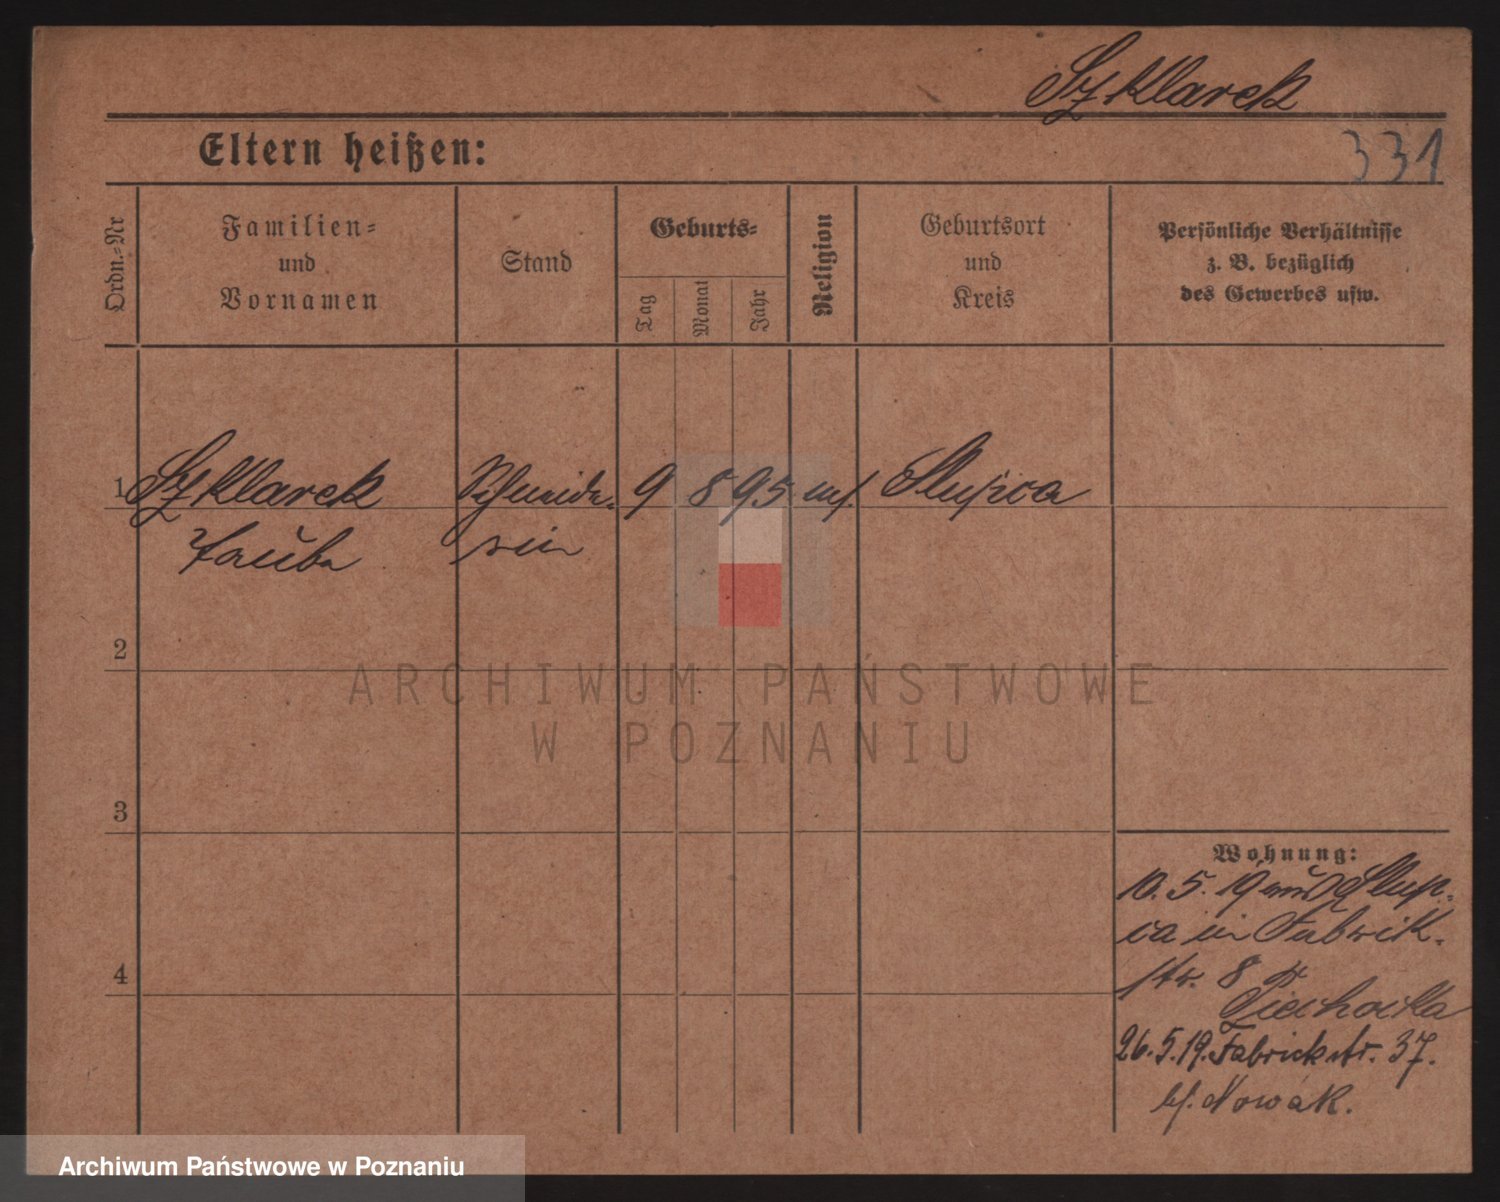 Szklarek
Eltern heißen:
331
Ordn.-Nr
Familien-
und
Vornamen
Stand
Geburts-
Tag
Monat
Jahr
Religion
Geburtsort
und
Kreis
Persönliche Verhältnisse
z. B. bezüglich
des Gewerbes usw.
1 Szklarek Schneide- 9 8 95 Slupca
Tauba rin
2
3
4
Wohnung:
10. 5. 19 Slup-
ca in Fabrik-
str. 8
Ciechocka
26.5.19. Fabrickstr. 37.
bf. Nowak.
ARCHIWUM PAŃSTWOWE
W POZNANIU
Archiwum Państwowe w Poznaniu